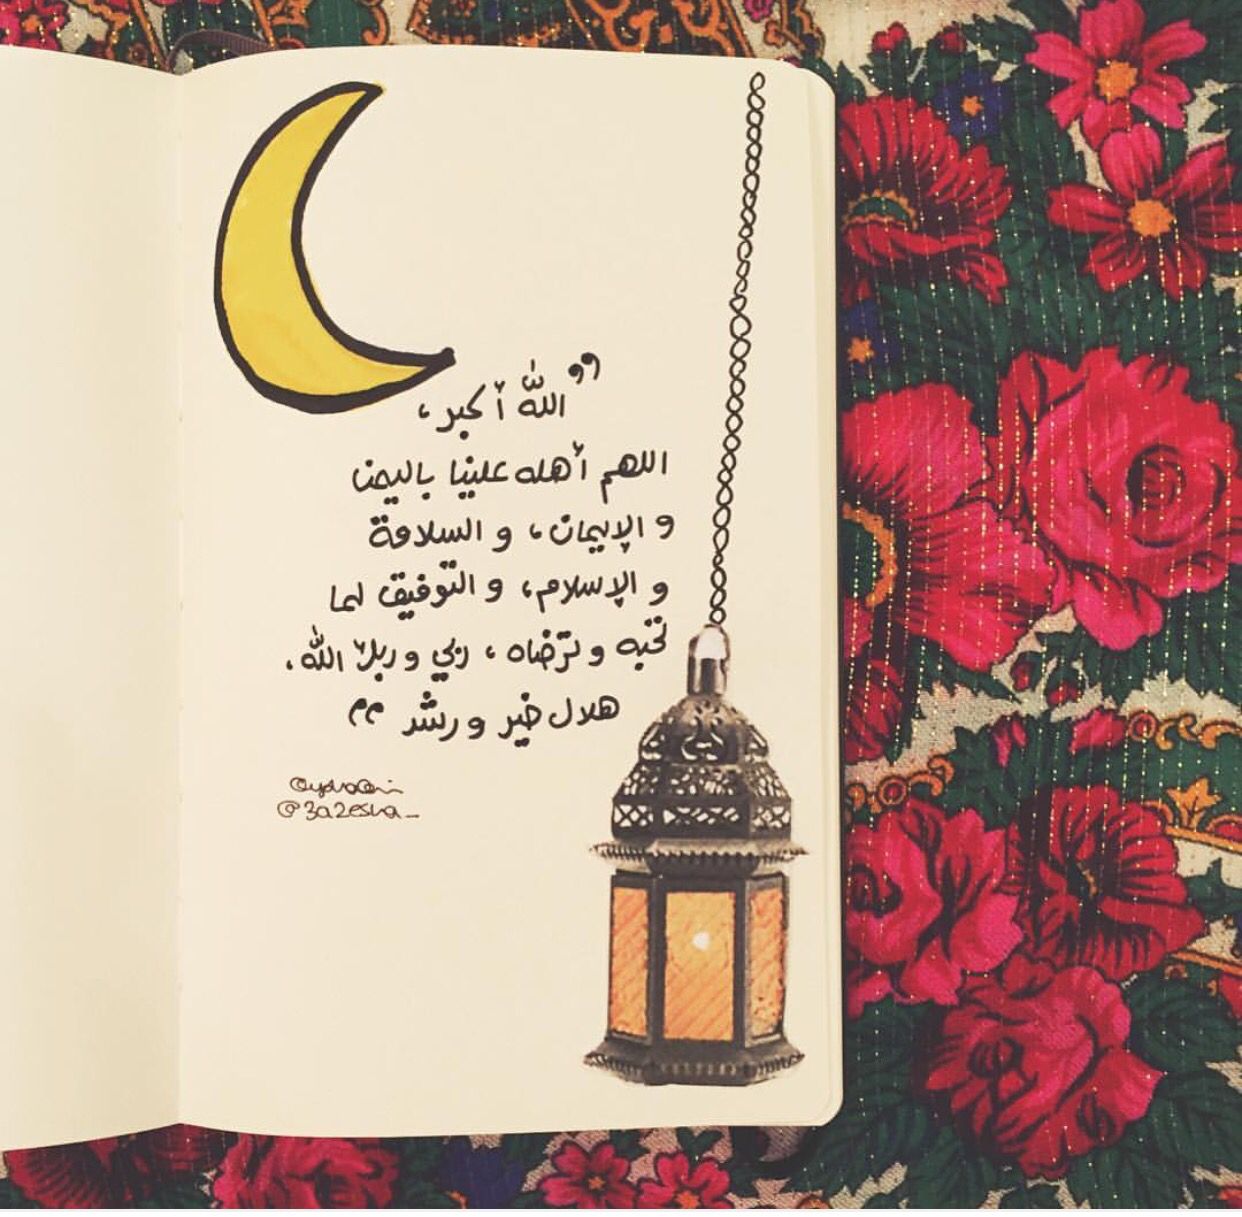 " الله أكبر ،
اللهم أهله علينا باليمن
و الإيمان ، و السلامة
و الإسلام ، و التوفيق لما
تحبه و ترضاه ، ربي و ربك الله .
هلال خير و رشد "
@3a2esha_